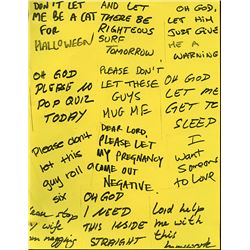 DON'T LET
ME BE A CAT
FOR
HALLOWEEN
AND LET
THERE BE
RIGHTEOUS
SURF
TOMORROW
OH GOD,
LET HIM
JUST GIVE
ME A
WARNING
OH GOD
PLEASE NO
POP QUIZ
TODAY
PLEASE DON'T
LET THESE
GUYS
MUG ME
OH GOD
LET ME
GET TO
SLEEP
Please don't
let this
guy roll a
six
DEAR LORD,
PLEASE LET
MY PREGNANCY
COME OUT
NEGATIVE.
I
Want
Someone
to Love
Please stop
my wife
from nagging
OH GOD
I NEED
THIS INSIDE
STRAIGHT
Lord help
me with
this
homework